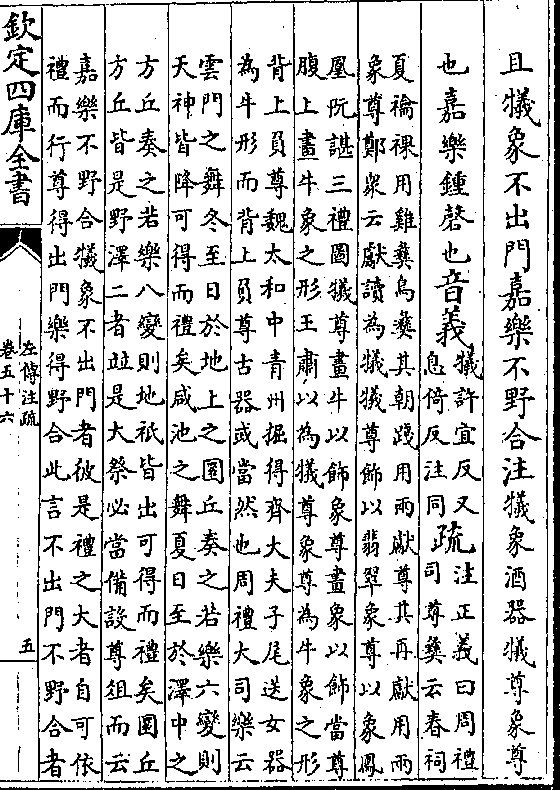 且犧象不出門嘉樂不野合注犧象酒器犧尊象尊
也嘉樂鍾磬也音義犧許宜反又
息倚反注同疏注正義曰周禮
司尊彝云春祠
夏禴祼用雞彝鳥彝其朝踐用兩獻尊其再獻用兩
象尊鄭衆云獻讀為犧犧尊飾以翡翠象尊以象鳳
凰阮諶三禮圖犧尊畫牛以飾象尊畫象以飾當尊
腹上畫牛象之形王肅以為犧尊象尊為牛象之形
背上負尊魏太和中青州掘得齊大夫子尾送女器
為牛形而背上負尊古器或當然也周禮大司樂云
雲門之舞冬至日於地上之圜丘奏之若樂六變則
天神皆降可得而禮矣咸池之舞夏日至於澤中之
方丘奏之若樂八變則地祇皆出可得而禮矣圜丘
方丘皆是野澤二者並是大祭必當備設尊俎而云
嘉樂不野合犧象不出門者彼是禮之大者自可依
禮而行尊得出門樂得野合此言不出門不野合者
欽定四庫全書
左傳注疏
卷五十六
五